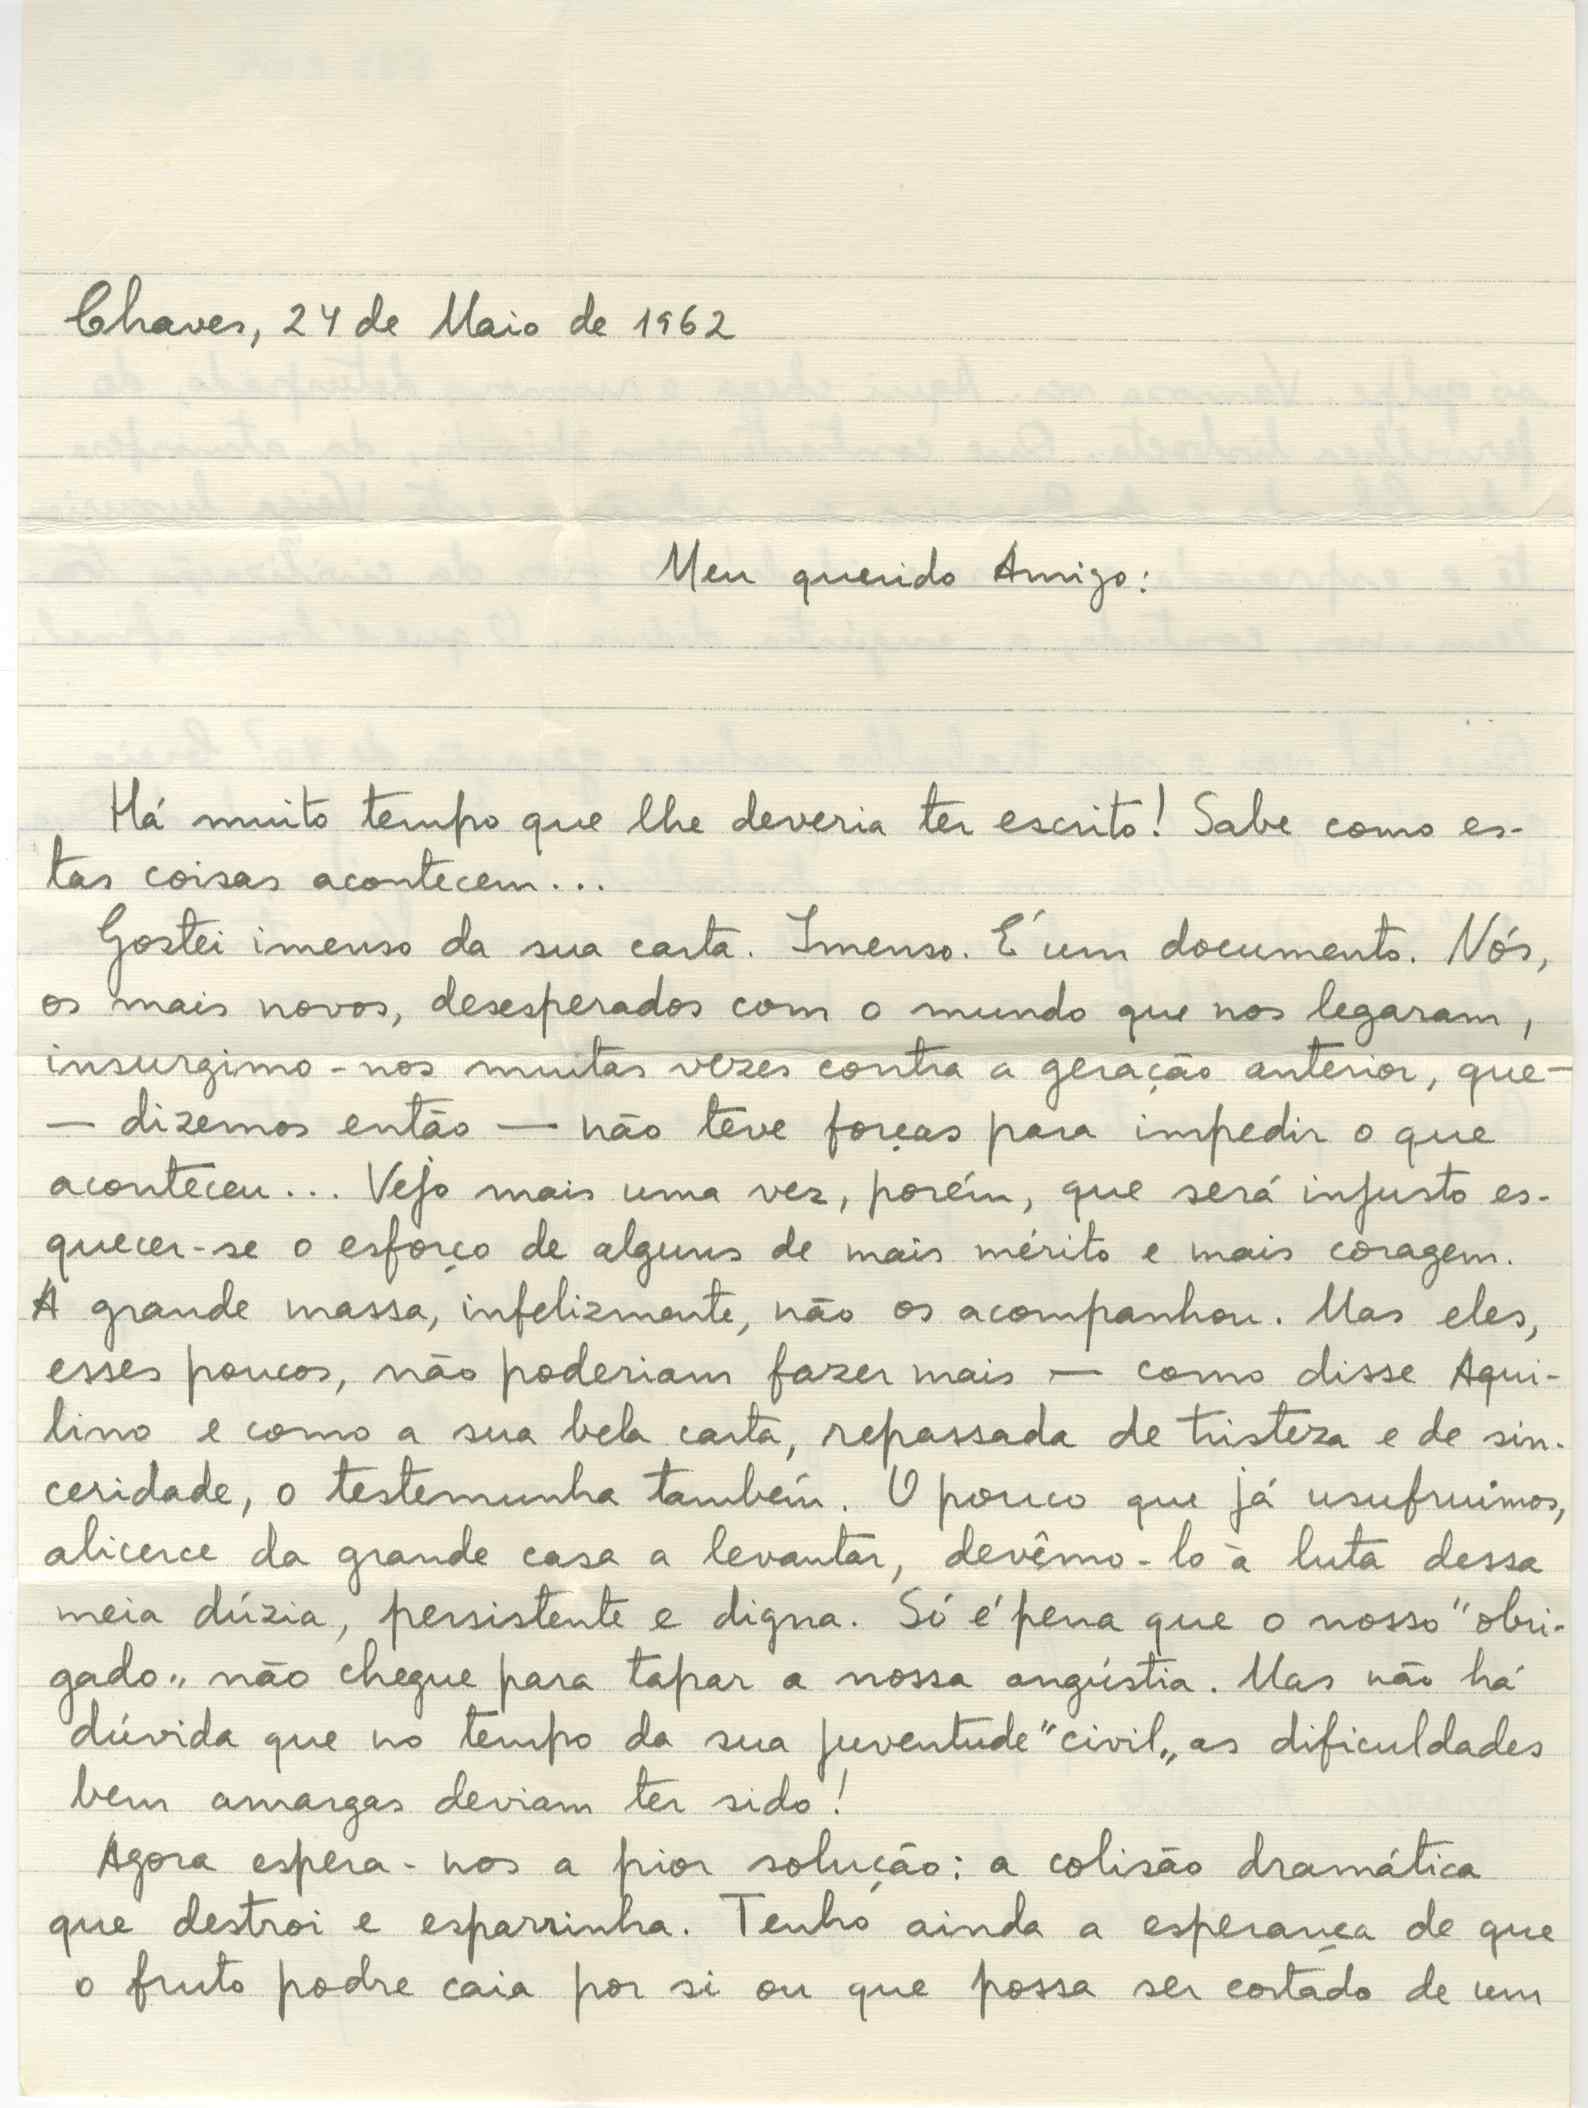 Chaves, 24 de Maio de 1962
Meu querido Amigo:
Há muito tempo que lhe deveria ter escrito! Sabe como es-
tas coisas acontecem...
Gostei imenso da sua carta. Imenso. É um documento. Nós,
os mais novos, desesperados com o mundo que nos legaram,
insurgimo-nos muitas vezes contra a geração anterior, que—
— dizemos então — não teve forças para impedir o que
aconteceu... Vejo mais uma vez, porém, que será injusto es-
quecer-se o esforço de alguns de mais mérito e mais coragem.
A grande massa, infelizmente, não os acompanhou. Mas eles,
esses poucos, não poderiam fazer mais — como disse Aqui-
lino e como a sua bela carta, repassada de tristeza e de sin-
ceridade, o testemunha também. O pouco que já usufruimos,
alicerce da grande casa a levantar, devêmo-lo à luta dessa
meia dúzia, persistente e digna. Só é pena que o nosso "obri-
gado" não chegue para tapar a nossa angústia. Mas não há
dúvida que no tempo da sua juventude "civil" as dificuldades
bem amargas deviam ter sido!
Agora espera-nos a pior solução: a colisão dramática
que destroi e esparrinha. Tenho ainda a esperança de que
o fruto podre caia por si ou que possa ser cortado de um